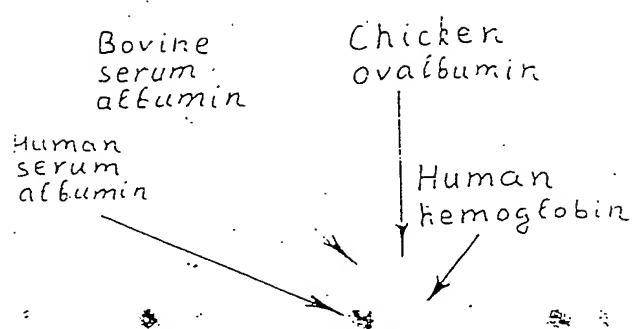 Bovine
serum
albumin
Chicken
ovalbumin
Human
serum
albumin
Human
hemoglobin